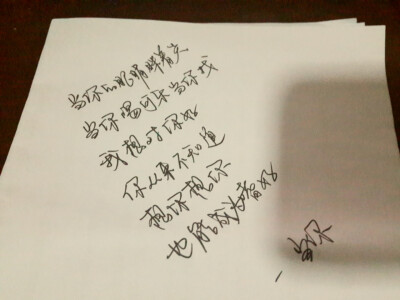 当你的眼睛眯着笑
当你喝可乐当你吵
我想对你好
你从来不知道
想你想你
也能成为嗜好
—当你